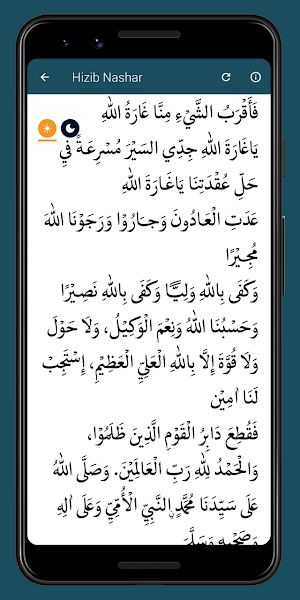 Hizib Nashar
فَأَقْرَبُ الشَّيْءِ مِنَّا غَارَةُ اللهِ
يَاغَارَةَ اللهِ جِدِّي السَيْرَ مُسْرِعَةً فِي
حَلِّ عُقْدَتِنَا يَاغَارَةَ اللهِ
عَدَتِ الْعَادُونَ وَجَارُوْا وَرَجَوْنَا اللهَ
مُجِيْرًا
وَكَفَى بِاللهِ وَلِيًّا وَكَفَى بِاللهِ نَصِيْرًا
وَحَسْبُنَا اللهُ وَنِعْمَ الْوَكِيْلُ، وَلَا حَوْلَ
وَلَا قُوَّةَ إِلَّا بِاللهِ الْعَلِيِّ الْعَظِيْمِ، إِسْتَجِبْ
لَنَا اٰمِيْن
فَقُطِعَ دَابِرُ الْقَوْمِ الَّذِينَ ظَلَمُوْا،
وَالْحَمْدُ لِلهِ رَبِّ الْعَالَمِيْنَ. وَصَلَّى اللهُ
عَلَى سَيِّدِنَا مُحَمَّدٍ النَّبِيِّ الْأُمِّيِّ وَعَلَى اٰلِهِ
وَصَحْبِهِ وَسَلَّمَ